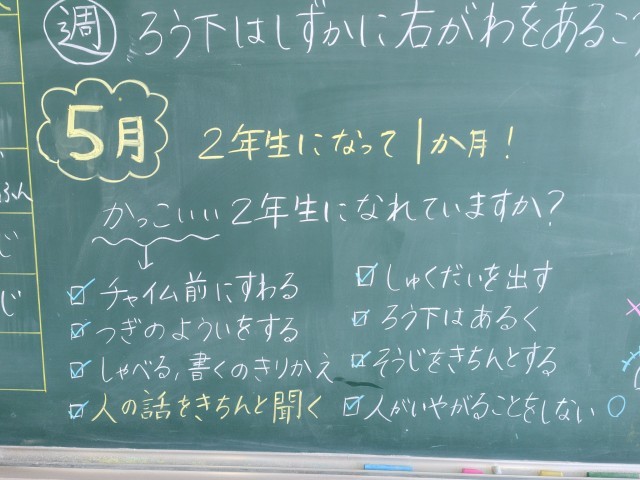 週 ろう下はしずかに右がわをあるこ
5月
2年生になって1か月！
かっこいい2年生になれていますか？
☑ チャイム前にすわる
☑ つぎのよういをする
☑ しゃべる、書くのきりかえ
☑ 人の話をきちんと聞く
☑ しゅくだいを出す
☑ ろう下はあるく
☑ そうじをきちんとする
☑ 人がいやがることをしない